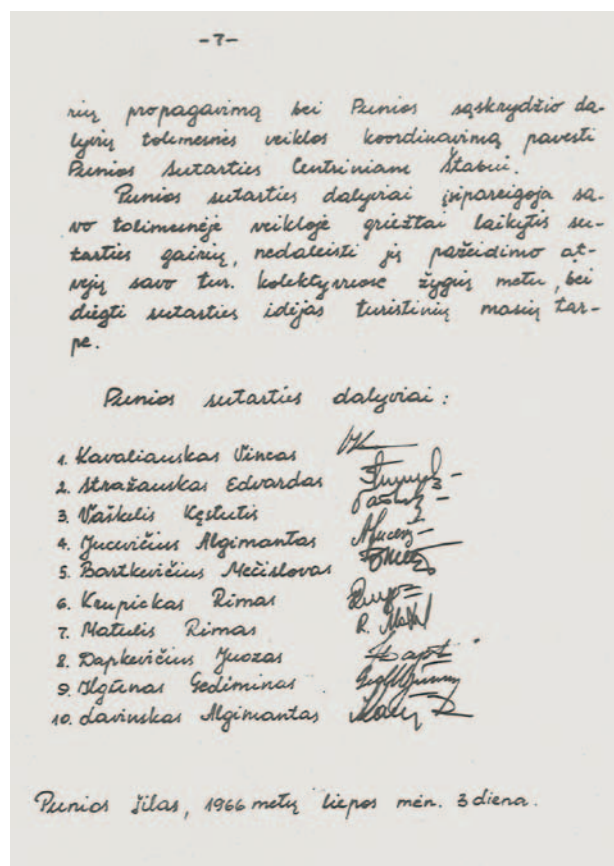 -7-
rių propagavimą bei Punios sąskrydžio da-
lyvių tolimesnės veiklos koordinavimą pavesti
Punios Sutarties Centriniam Štabui.
Punios sutarties dalyviai įsipareigoja sa-
vo tolimesnėje veikloje griežtai laikytis su-
tarties gairių, nedaleisti jų pažeidimo at-
vejų savo tur. kolektyvuose žygių metu, bei
diegti sutarties idėjas turistinių masių tar-
pe.
Punios sutarties dalyviai:
1. Kavaliauskas Vincas
2. Stražauskas Edvardas
3. Vaškelis Kęstutis
4. Jucevičius Algimantas
5. Bartkevičius Mečislovas
6. Krupickas Rimas
7. Matulis Rimas R. Mat
8. Dapkevičius Juozas
9. Ilgūnas Gediminas
10. Lavinskas Algimantas
Punios šilas, 1966 metų liepos mėn. 3 diena.